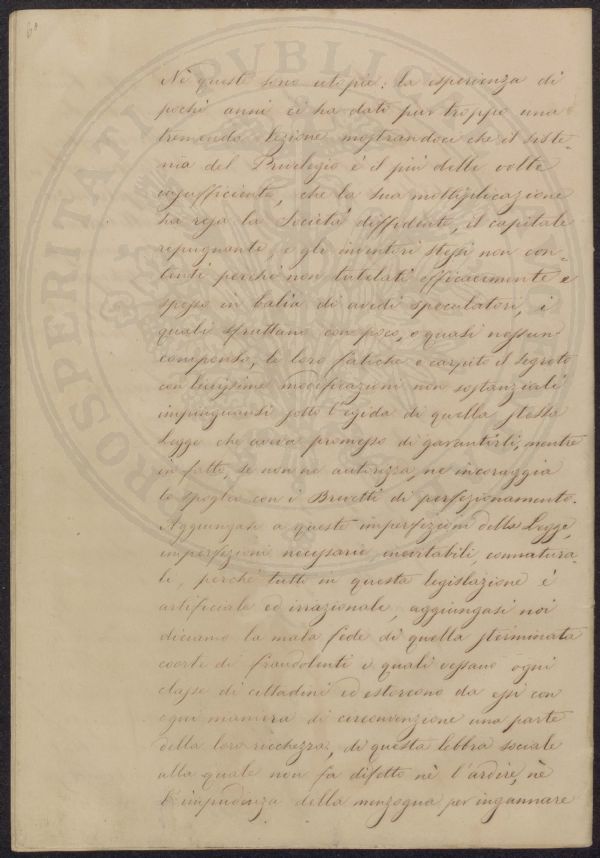 6ª
PROSPERITATI PVBLIC
Nè queste sono utopie: la esperienza di
pochi anni ci ha dato pur troppo una
tremenda lezione mostrandoci che il siste-
ma del Privilegio è il più delle volte
insufficiente, che la sua moltiplicazione
ha resa la Società diffidente, il capitale
repugnante, e gli inventori stessi non con-
tenti perchè non tutelati efficacemente e
spesso in balia di avidi speculatori, i
quali sfruttano con poco, o quasi nessun
compenso, le loro fatiche o carpito il segreto
con lievissime modificazioni non sostanziali
impinguansi sotto l'egida di quella stessa
Legge che aveva promesso di garantirli, mentre
in fatto, se non ne autorizza, ne incoraggia
lo spoglio con i Brevetti di perfezionamento.
Aggiungasi a queste imperfezioni della Legge,
imperfezioni necessarie inevitabili, connatura-
li, perchè tutto in questa legislazione è
artificiale ed irrazionale, aggiungasi noi
diciamo la mala fede di quella sterminata
coorte di fraudolenti i quali vessano ogni
classe di cittadini ed estorcono da essi con
ogni maniera di circonvenzione una parte
della loro ricchezza, di questa lebbra sociale
alla quale non fa difetto nè l'ardire, nè
l'impudenza della menzogna per ingannare